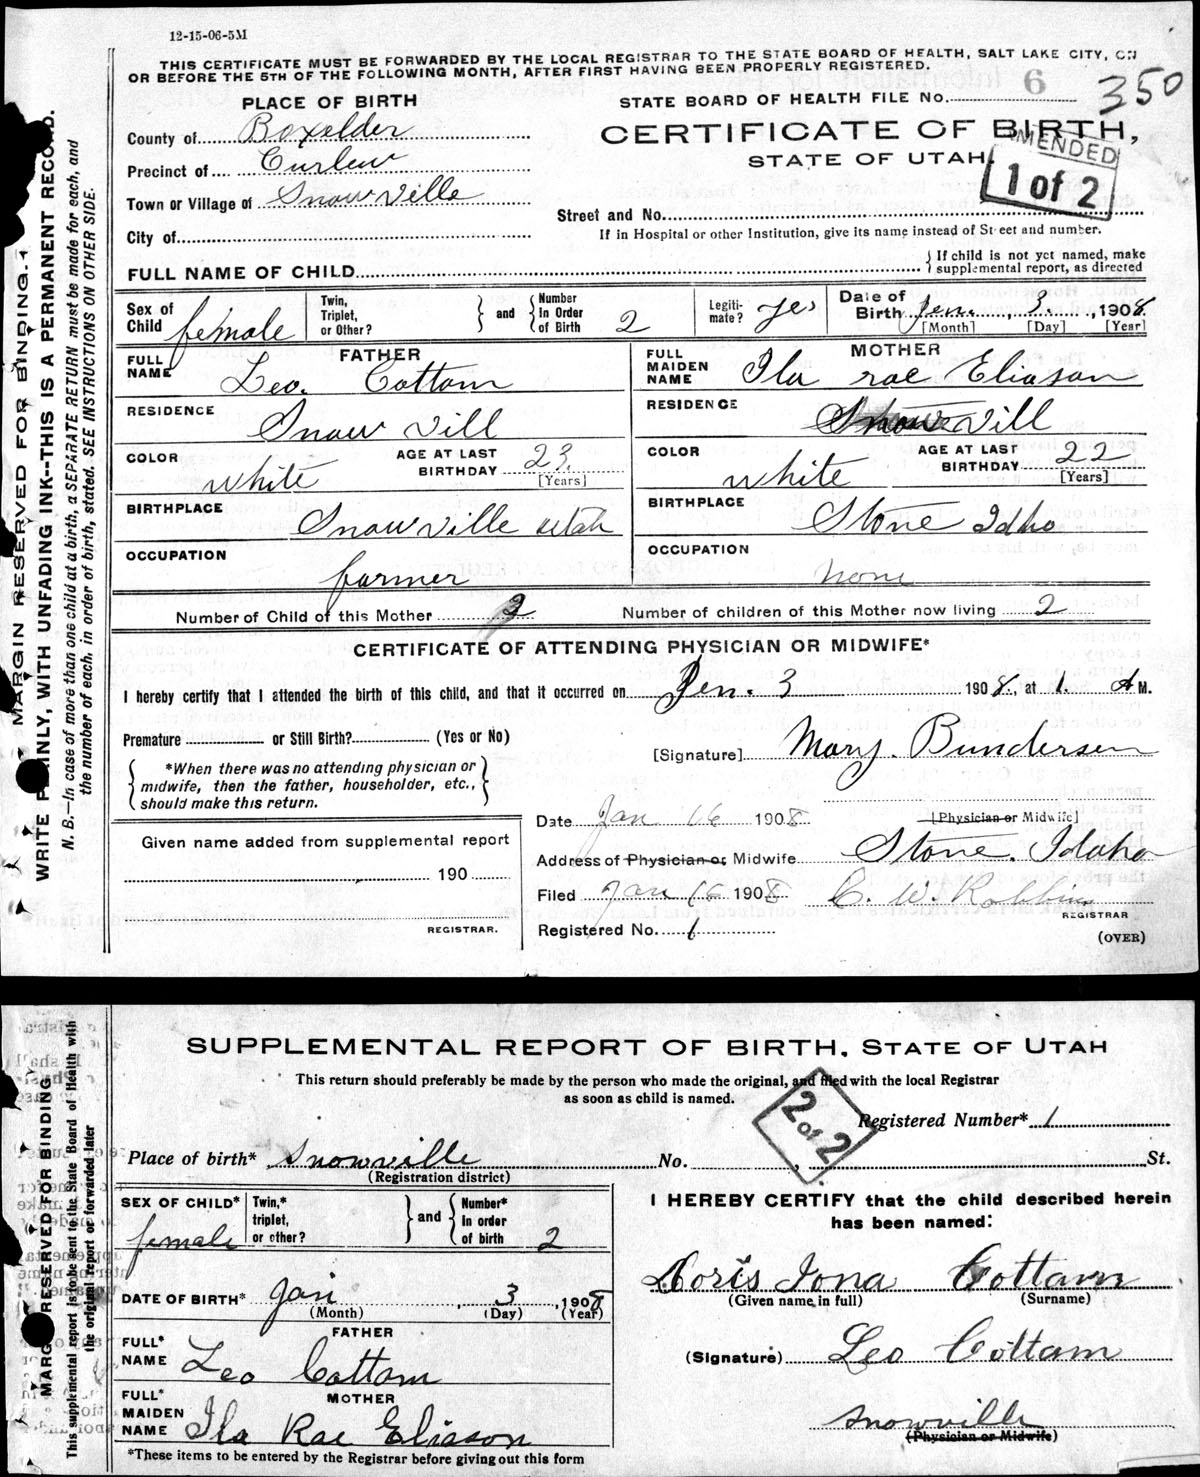 12-15-06-5M
THIS CERTIFICATE MUST BE FORWARDED BY THE LOCAL REGISTRAR TO THE STATE BOARD OF HEALTH, SALT LAKE CITY, ON
OR BEFORE THE 5TH OF THE FOLLOWING MONTH, AFTER FIRST HAVING BEEN PROPERLY REGISTERED.
6
350
PLACE OF BIRTH
STATE BOARD OF HEALTH FILE No.
County of Boxelder
CERTIFICATE OF BIRTH,
STATE OF UTAH.
AMENDED
1 of 2
Precinct of Curlew
Town or Village of Snowville
Street and No.
City of
If in Hospital or other Institution, give its name instead of Street and number.
FULL NAME OF CHILD
If child is not yet named, make
supplemental report, as directed
Sex of Child female
Twin, Triplet, or Other?
and
Number In Order of Birth 2
Legitimate? yes
Date of Birth Jen. 3. 1908
[Month] [Day] [Year]
FATHER
FULL NAME Leo. Cottam
RESIDENCE Snow vill
COLOR white
AGE AT LAST BIRTHDAY 23.
[Years]
BIRTHPLACE Snowville utah
OCCUPATION farmer
MOTHER
FULL MAIDEN NAME Ila rae Eliason
RESIDENCE Snow vill
COLOR white
AGE AT LAST BIRTHDAY 22
[Years]
BIRTHPLACE Stone Idho
OCCUPATION none
Number of Child of this Mother 2
Number of children of this Mother now living 2
CERTIFICATE OF ATTENDING PHYSICIAN OR MIDWIFE*
I hereby certify that I attended the birth of this child, and that it occurred on Jen. 3 1908, at 1. A M.
Premature or Still Birth? (Yes or No)
[Signature] Mary. Bundersen
*When there was no attending physician or
midwife, then the father, householder, etc.,
should make this return.
Date Jan 16 1908
[Physician or Midwife]
Address of Physician or Midwife Stone. Idaho
Given name added from supplemental report
190
REGISTRAR.
Filed Jan 16 1908 C. W. Robbins
REGISTRAR
Registered No. 1
(OVER)
MARGIN RESERVED FOR BINDING.
WRITE PLAINLY, WITH UNFADING INK--THIS IS A PERMANENT RECORD.
N. B.—In case of more than one child at a birth, a SEPARATE RETURN must be made for each, and
the number of each, in order of birth, stated. SEE INSTRUCTIONS ON OTHER SIDE.
SUPPLEMENTAL REPORT OF BIRTH, STATE OF UTAH
This return should preferably be made by the person who made the original, and filed with the local Registrar
as soon as child is named.
2 of 2
Registered Number* 1
Place of birth* Snowville No. St.
(Registration district)
SEX OF CHILD* female
Twin,* triplet, or other?
and
Number* In order of birth 2
DATE OF BIRTH* Jan 3, 1908
(Month) (Day) (Year)
FATHER
FULL* NAME Leo Cottam
MOTHER
FULL* MAIDEN NAME Ila Rae Eliason
*These items to be entered by the Registrar before giving out this form
I HEREBY CERTIFY that the child described herein
has been named:
Doris Iona Cottam
(Given name in full) (Surname)
(Signature) Leo Cottam
Snowville
(Physician or Midwife)
MARGIN RESERVED FOR BINDING
This supplemental report is to be sent to the State Board of Health with
the original report or forwarded later